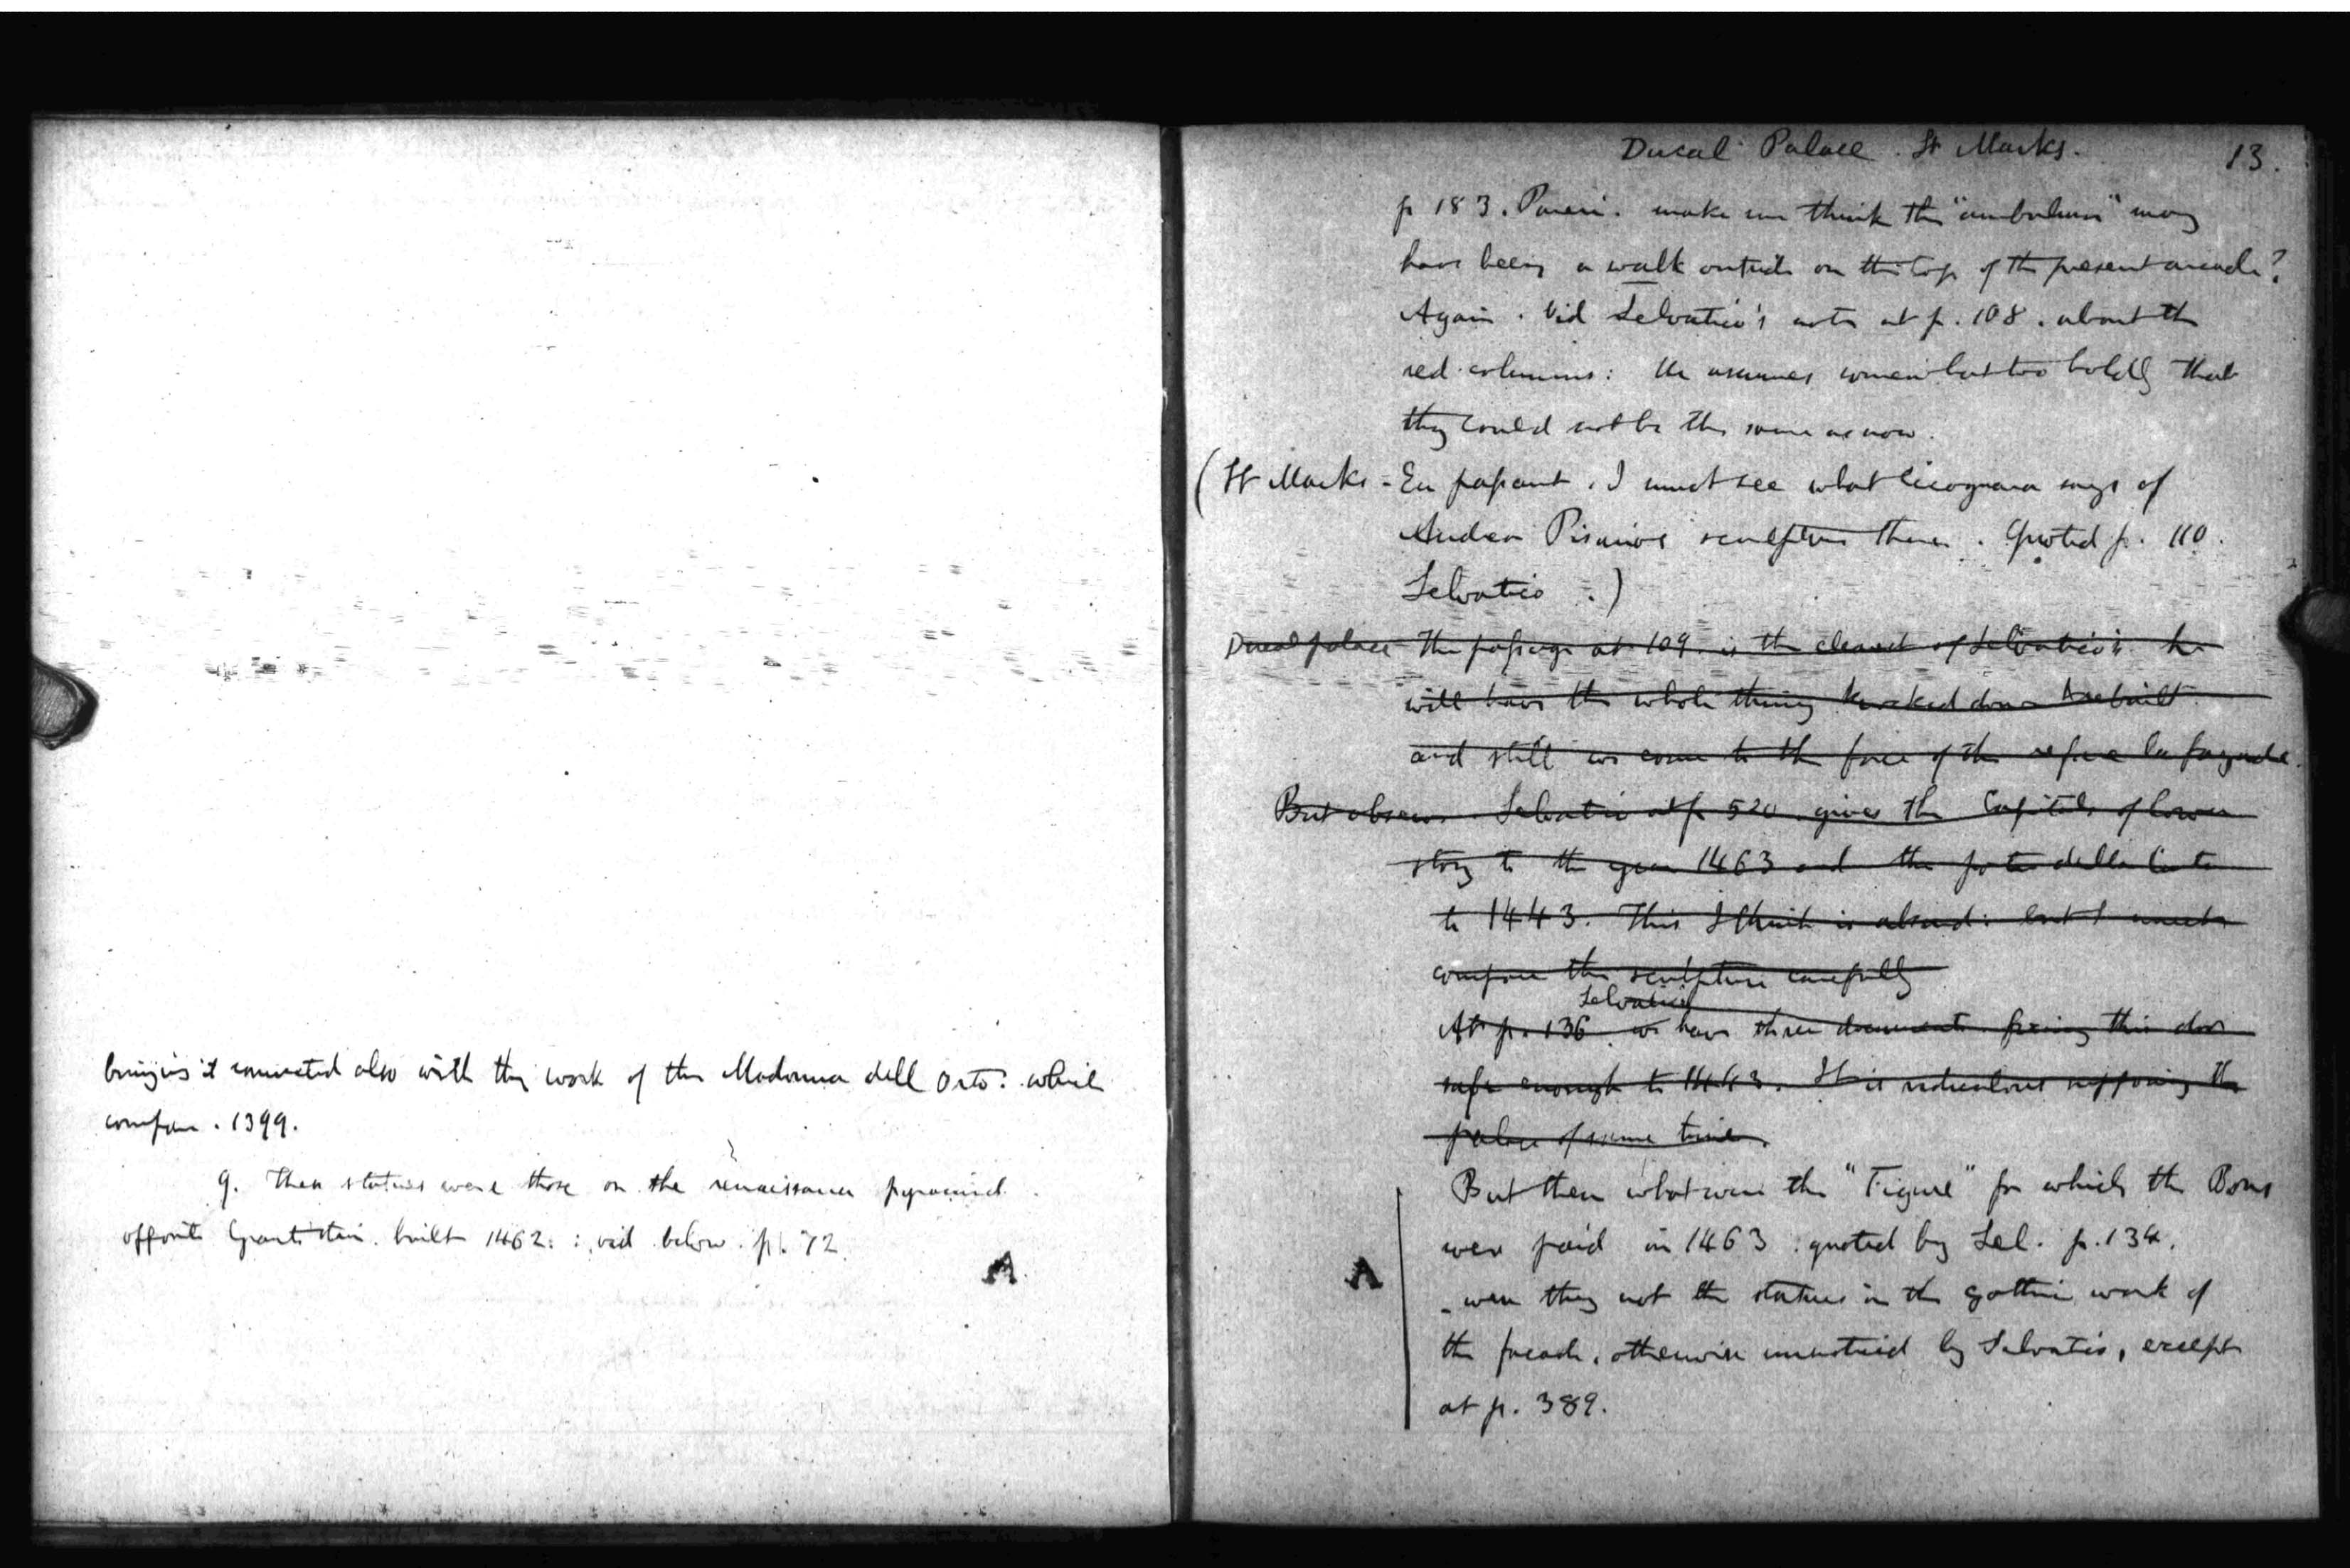 bringing it connected also with the work of the Madonna dell Orto: which
compare. 1399.
q. Then statues were those on the renaissance pyramid.
opposite Giants stair. built 1462. : vid below. p. 72
A
Ducal Palace. St Marks.
13.
p 183. make me think the "ambulum" may
have been a walk outside on the top of the present arcade?
Again. Vid Selvatico's note at p. 108. about the
red columns: He assumes somewhat too boldly that
they could not be the same as now.
(St Marks - En passant. I must see what Cicognara says of
Andrea Pisano's sculpture there. Quoted p. 110.
Selvatico.)
Ducal palace The passage at 109 is the clearest of Selvatico's. he
will have the whole thing knocked down & rebuilt
and still we come to the face of the
But observe. Selvatico at p 520 gives the Capitals of lower
story to the year 1463 and the porta della Carta
to 1443. This I think is absurd: but I must
compare the sculpture carefully
Selvatico
At p. 136 we have three documents fixing this door
safe enough to 1443. It is ridiculous supposing the
palace of same time.
But then what were the "Figure" for which the Bons
A
were paid in 1463. quoted by Sel. p. 134.
- were they not the statues in the gothic work of
the facade, otherwise unnoticed by Selvatico, except
at p. 389.